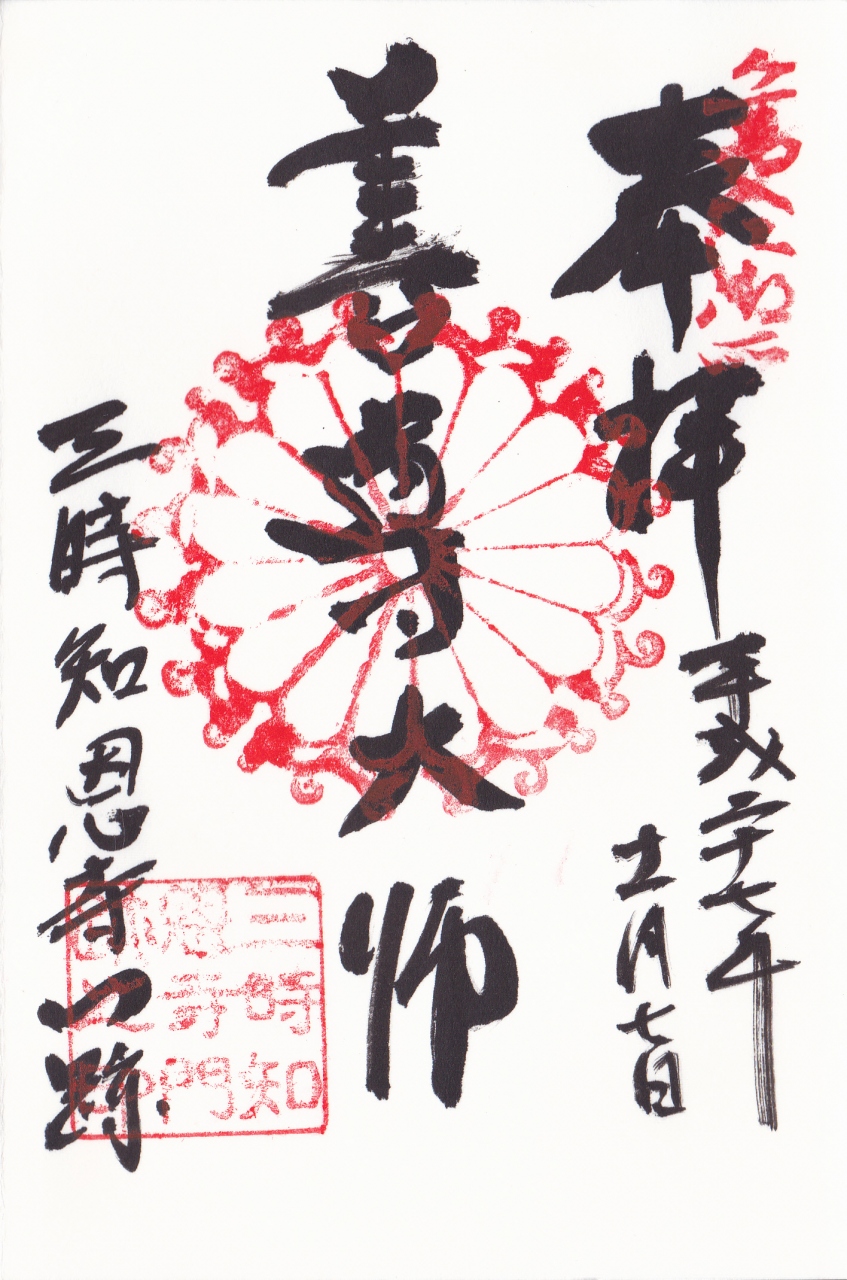 奉拝
平成二十七年
十一月七日
善導大師
三時知恩寺門跡
三時知
恩寺門
跡之印